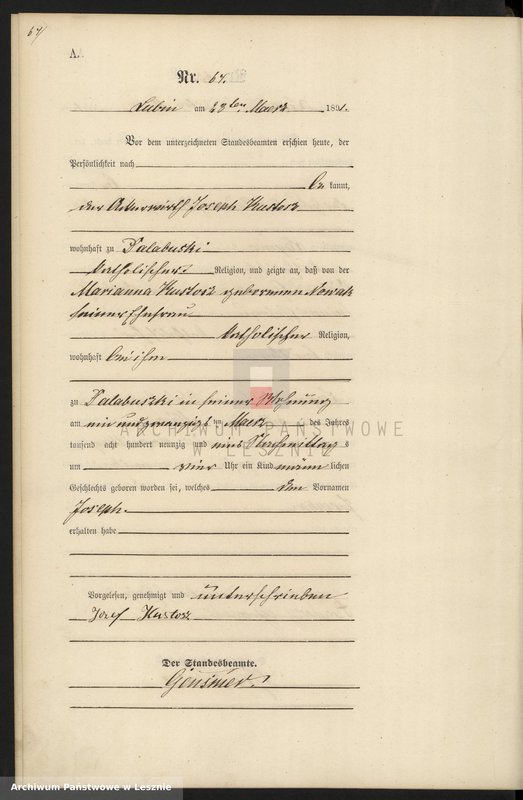 67
A.
Nr. 67.
Lubin am 23ten Maerz 1891.
Vor dem unterzeichneten Standesbeamten erschien heute, der
Persönlichkeit nach
be kannt,
der Ackerwirth Joseph Kustosz
wohnhaft zu Zalabuski
katholischer Religion, und zeigte an, daß von der
Marianna Kustosz geborenen Nowak
seiner Ehefrau
katholischer Religion,
wohnhaft bei ihm
zu Zalabuszki in seiner Wohnung
am ein und zwanzigsten Maerz des Jahres
tausend acht hundert neunzig und eins Nachmittag s
um vier Uhr ein Kind männ lichen
Geschlechts geboren worden sei, welches den Vornamen
Joseph
erhalten habe
Vorgelesen, genehmigt und unterschrieben
Jozef Kustosz
Der Standesbeamte.
ARCHIWUM PAŃSTWOWE
W LESZNIE
Archiwum Państwowe w Lesznie